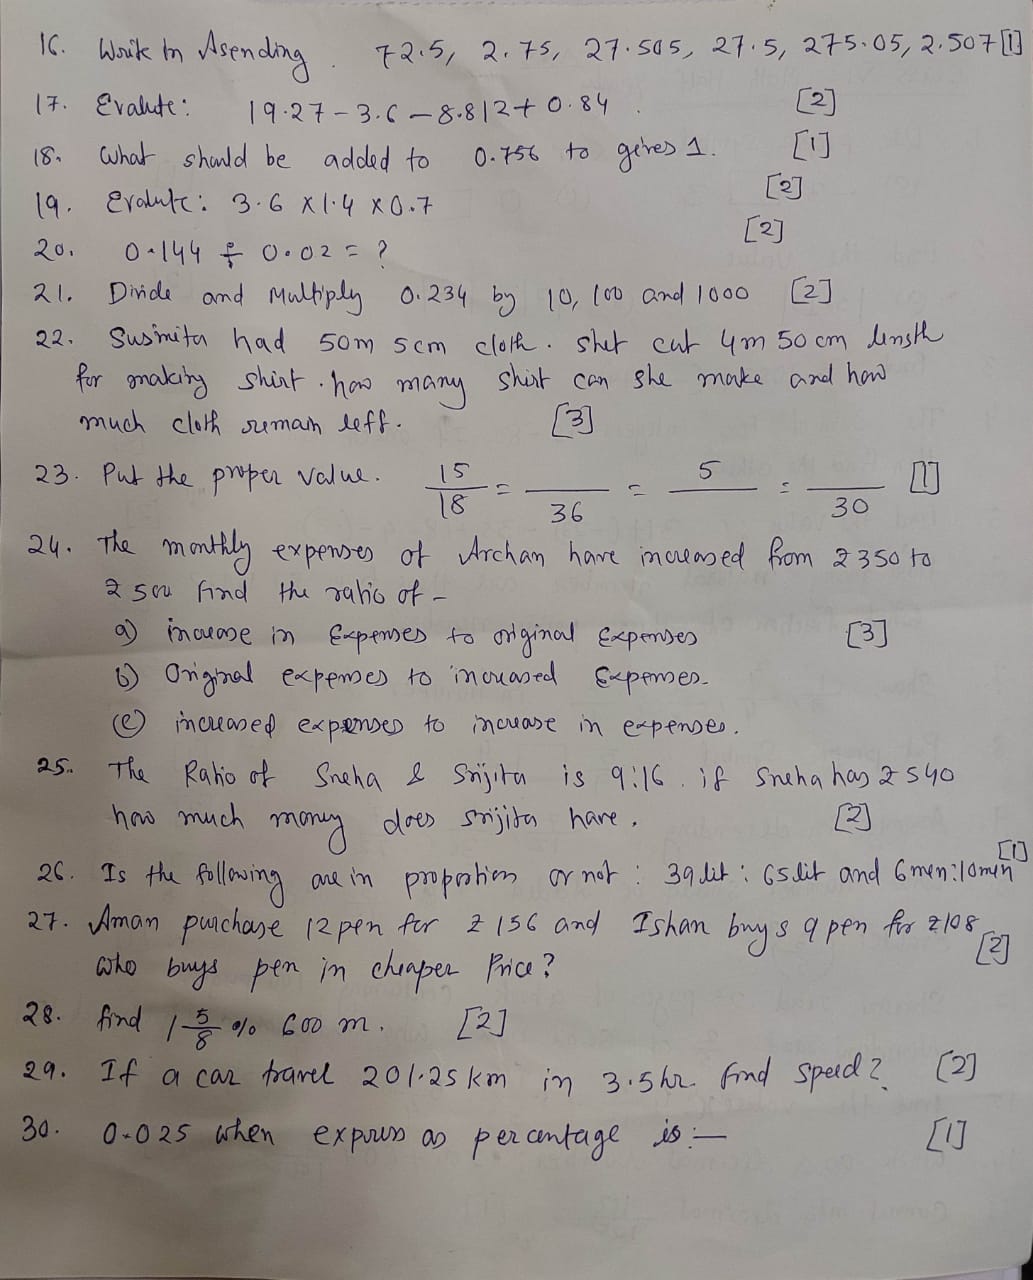 16. Write In Asending. 72.5, 2.75, 27.505, 27.5, 275.05, 2.507 [1]
17. Evalute: 19.27 - 3.6 - 8.812 + 0.84. [2]
18. What should be added to 0.756 to geves 1. [1]
19. Evalute: 3.6 x 1.4 x 0.7 [2]
20. 0.144 ÷ 0.02 = ? [2]
21. Divide and Multiply 0.234 by 10, 100 and 1000 [2]
22. Susmita had 50m 5cm cloth. shet cut 4m 50cm length
for making shirt. how many shirt can she make and how
much cloth remain leff. [3]
23. Put the proper value. 15/18 = __/36 = 5/__ = __/30 [1]
24. The monthly expenses of Archan have increased from ₹350 to
₹500 find the ratio of -
a) increase in Expenses to original Expenses [3]
b) Original expenses to increased Expenses.
(c) increased expenses to increase in expenses.
25. The Ratio of Sneha & Srijita is 9:16. if Sneha has ₹540
how much money does srijita have. [2]
26. Is the following are in proportion or not : 39 lit : 65 lit and 6men:10men [1]
27. Aman purchase 12 pen for ₹156 and Ishan buys 9 pen for ₹108
who buys pen in cheaper Price? [2]
28. find 1 5/8 % 600 m. [2]
29. If a car travel 201.25 km in 3.5 hr. find speed? [2]
30. 0.025 when express as percentage is :— [1]